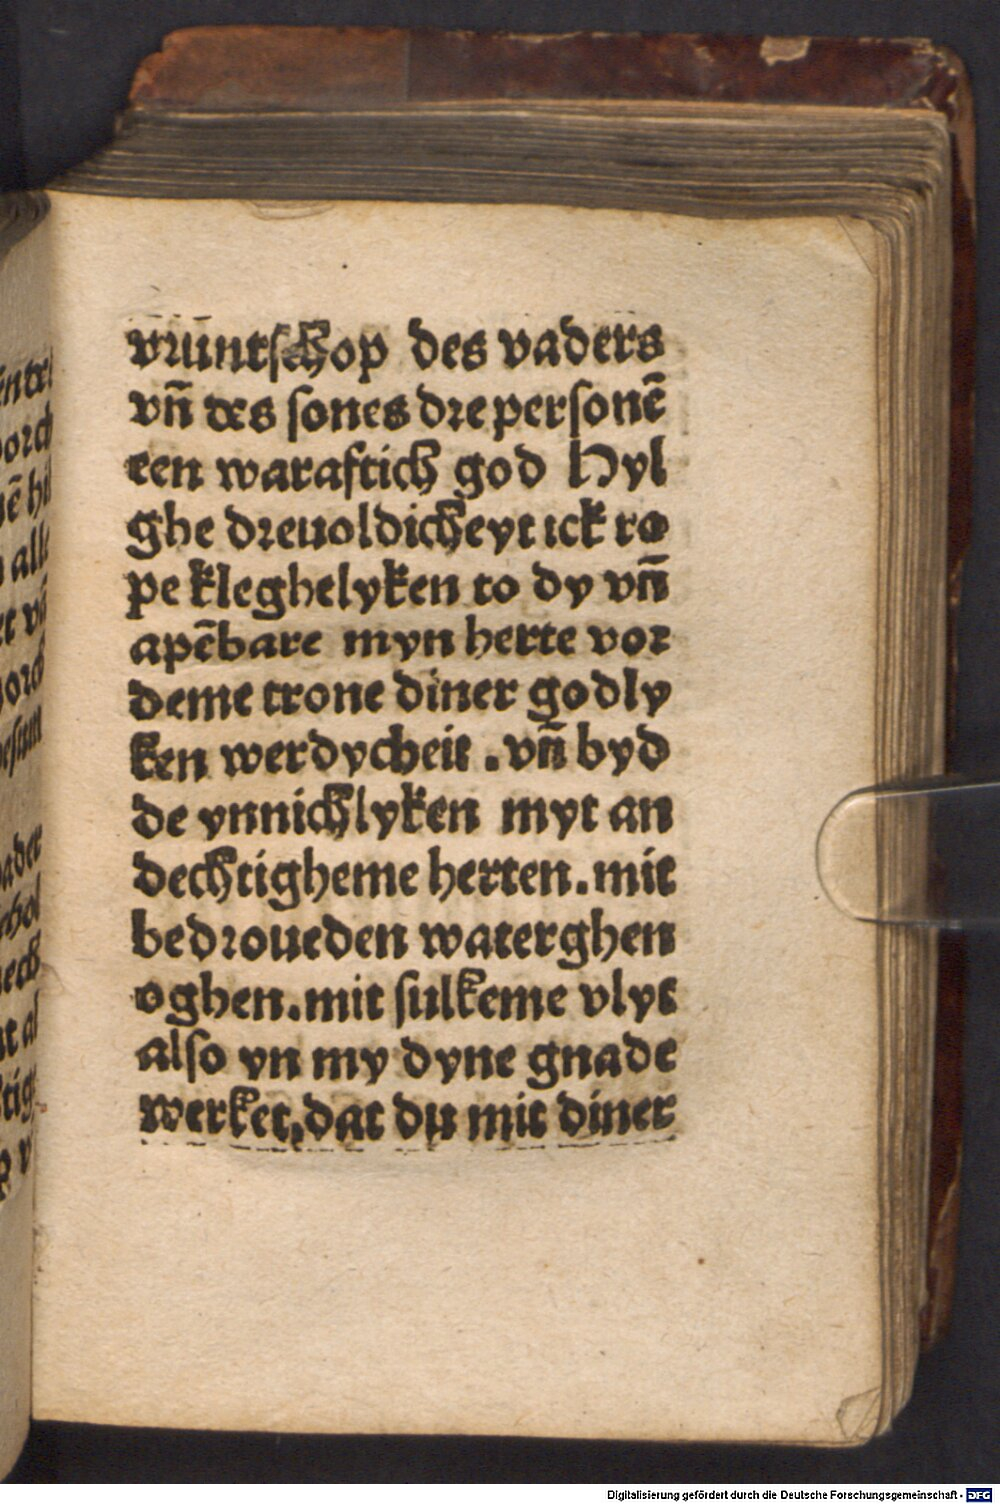 vruntschop des vaders
vn̄ des sones dre personē
een waraftich god Hyl
ghe dreuoldicheyt ick ro
pe kleghelyken to dy vn̄
apēbare myn herte vor
deme trone diner godly
ken werdycheit . vn̄ byd
de ynnichlyken myt an
dechtigheme herten. mit
bedroueden waterghen
oghen. mit sulkeme vlyt
also yn my dyne gnade
werket, dat du mit diner
Digitalisierung gefördert durch die Deutsche Forschungsgemeinschaft - DFG